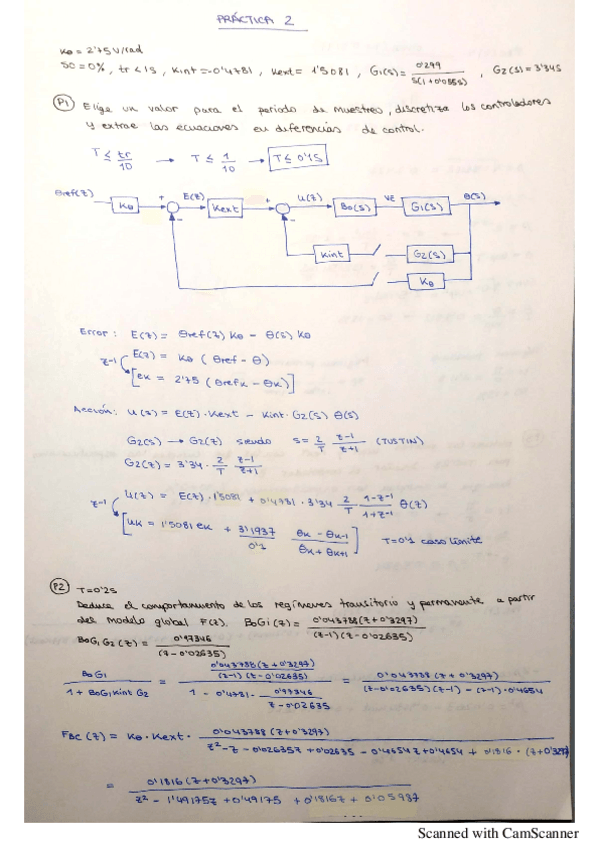 PRÁCTICA 2
Kθ = 2'75 V/rad
SO = 0%, tr < 1s, Kint = -0'4781, Kext = 1'5081, G1(s) = 0'299 / s(1+0'055s), G2(s) = 3'34s
P1 Elige un valor para el periodo de muestreo, discretiza los controladores
y extrae las ecuaciones en diferencias de control.
T ≤ tr/10 → T ≤ 1/10 → T ≤ 0'1s
θref(z) Kθ + - E(z) Kext + - U(z) Bo(s) G1(s) θ(s)
Kint G2(s)
Kθ
Error: E(z) = θref(z) Kθ - θ(s) Kθ
z-1 E(z) = Kθ (θref - θ)
[eK = 2'75 (θrefK - θK)]
Acción: U(z) = E(z)·Kext - Kint·G2(s) θ(s)
G2(s) → G2(z) siendo s = 2/T z-1/z+1 (TUSTIN)
G2(z) = 3'34 · 2/T z-1/z+1
z-1 U(z) = E(z)·1'5081 + 0'4781 · 3'34 2/T 1-z-1/1+z-1 θ(z)
[uK = 1'5081 eK + 3'1937/0'1 θK - θK-1/θK + θK+1] T=0'1 caso límite
P2 T=0'2s
Deduce el comportamiento de los regímenes transitorio y permanente a partir
del modelo global F(z). BoG1(z) = 0'043788(z+0'3297) / (z-1)(z-0'02635)
BoG1G2(z) = 0'97346 / (z-0'02635)
BoG1 / 1 + BoG1KintG2 = 0'043788(z+0'3297)/(z-1)(z-0'02635) / 1 - 0'4781 · 0'97346/z-0'02635 = 0'043788(z+0'3297) / (z-0'02635)(z-1) - (z-1)·0'4654
FBC(z) = Kθ · Kext · 0'043788(z+0'3297) / z² - z - 0'02635z + 0'02635 - 0'4654z + 0'4654 + 0'1816·(z+0'3297)
= 0'1816(z+0'3297) / z² - 1'49175z + 0'49175 + 0'1816z + 0'05987
Scanned with CamScanner